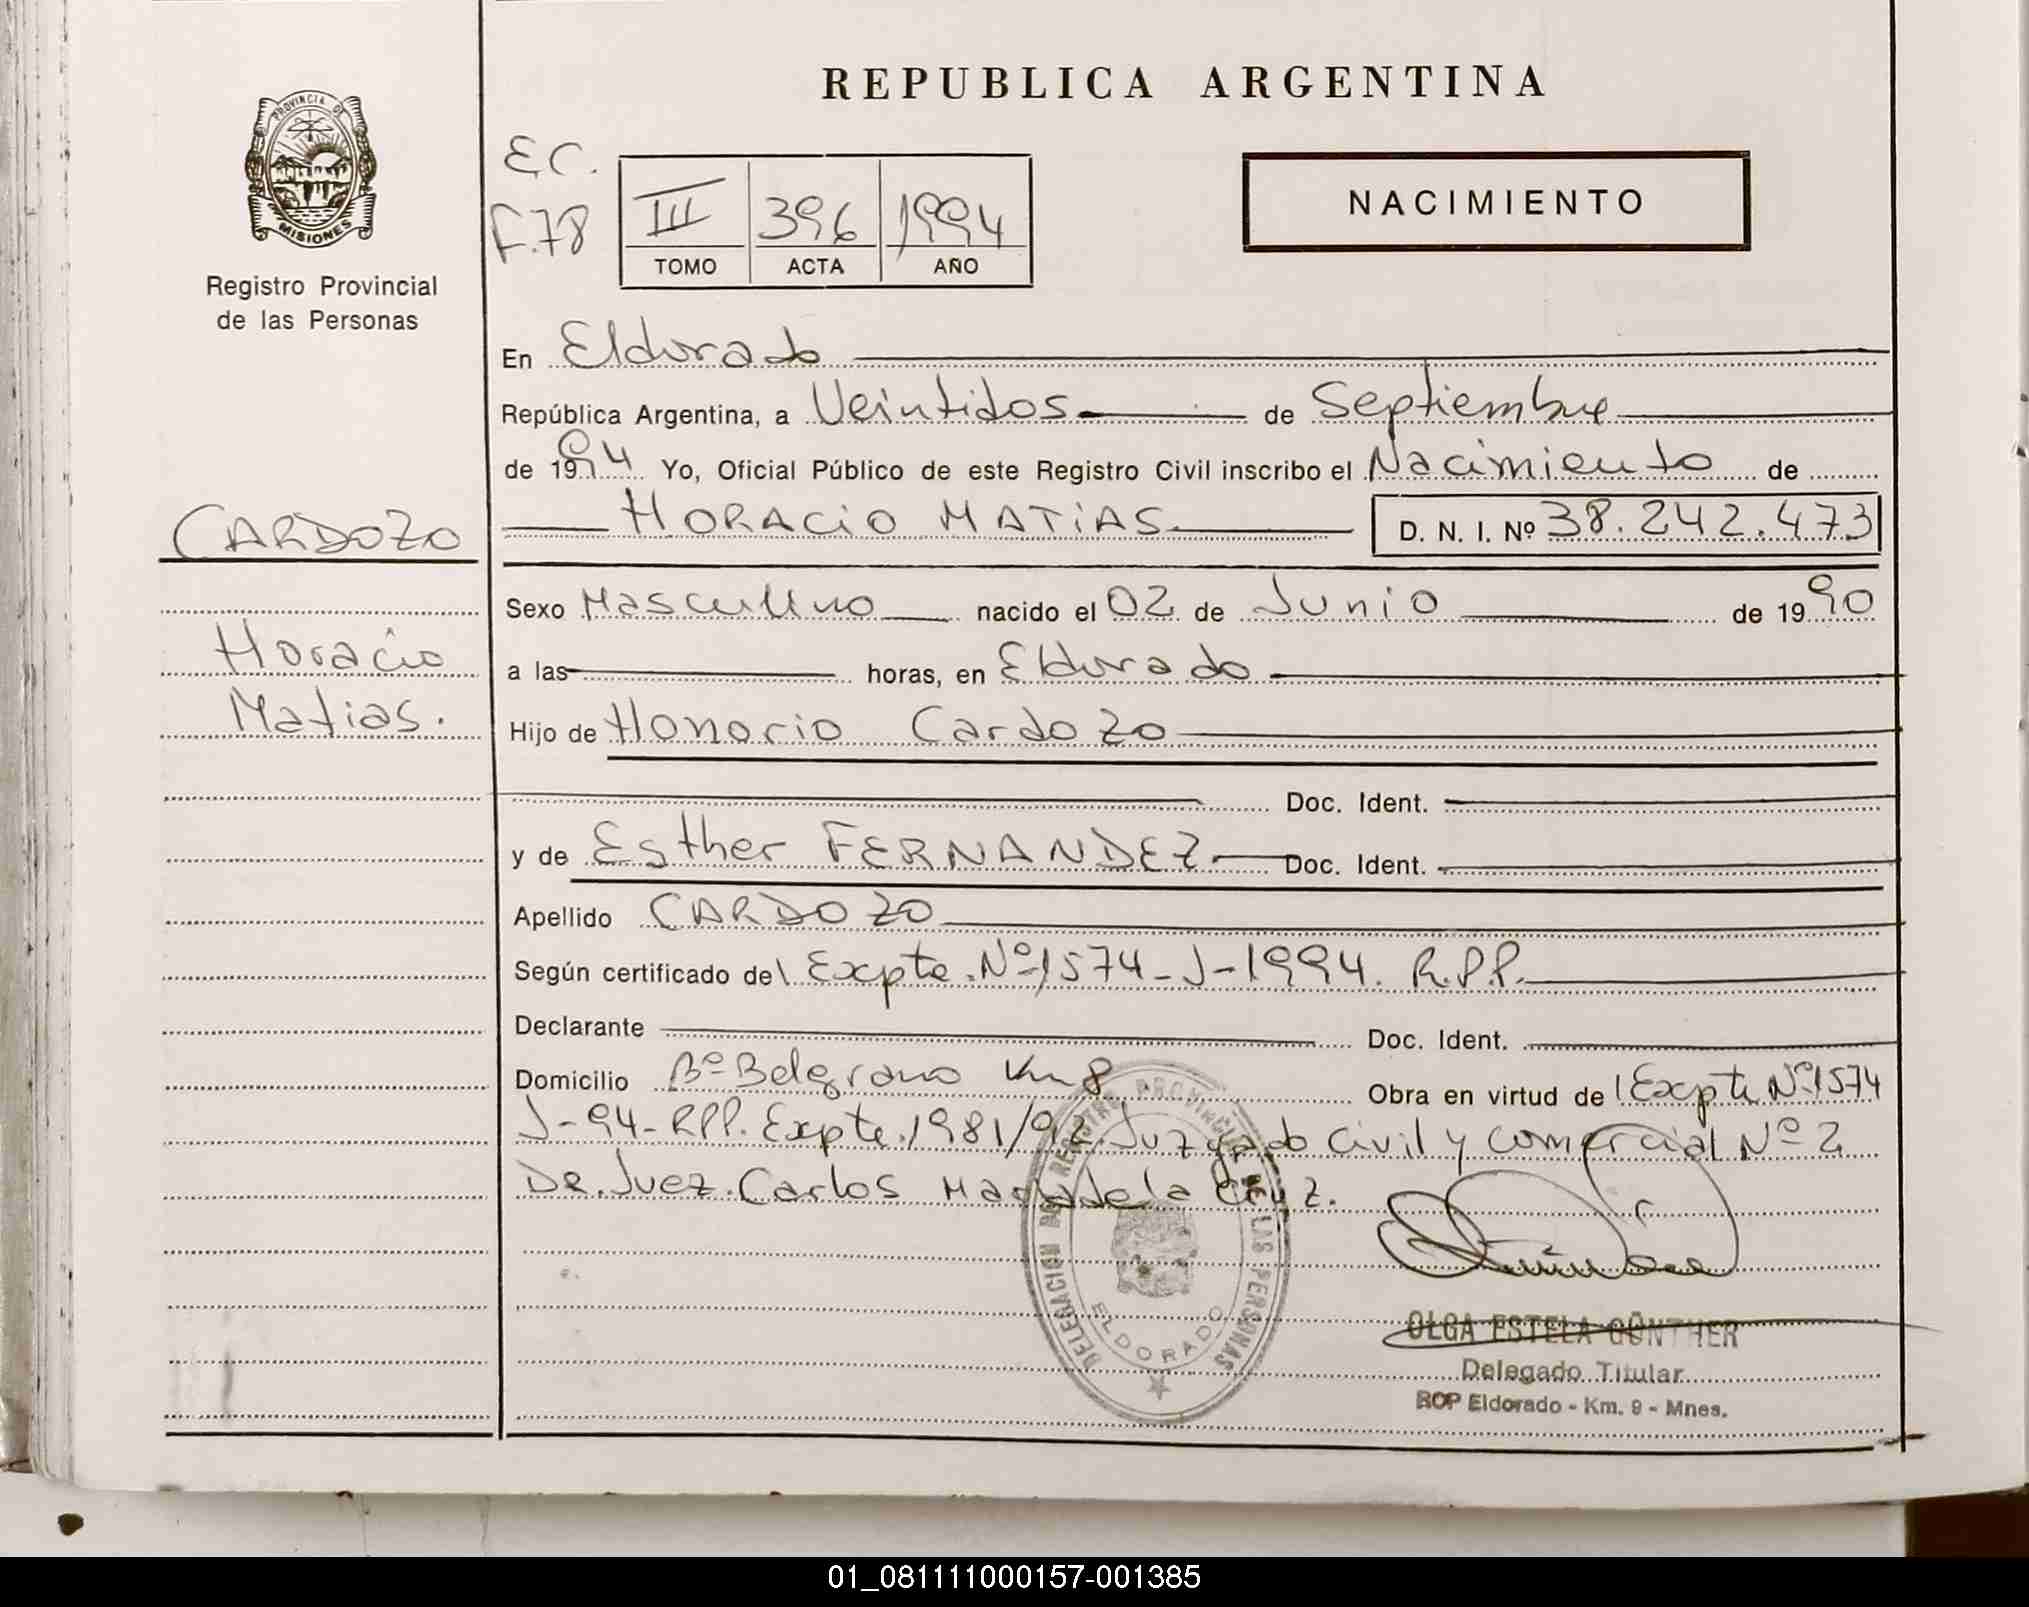 REPUBLICA ARGENTINA
PROVINCIA DE
MISIONES
Registro Provincial
de las Personas
EC.
F.78
III 396 1994
TOMO ACTA AÑO
NACIMIENTO
En Eldorado
República Argentina, a Veintidos de Septiembre
de 1994 Yo, Oficial Público de este Registro Civil inscribo el Nacimiento de
CARDOZO
HORACIO MATIAS D. N. I. Nº 38.242.473
Sexo Masculino nacido el 02 de Junio de 1990
Horacio
Matias.
a las horas, en Eldorado
Hijo de Honorio Cardozo
Doc. Ident.
y de Esther FERNANDEZ Doc. Ident.
Apellido CARDOZO
Según certificado del Expte. Nº 1574-J-1994. R.P.P.
Declarante Doc. Ident.
Domicilio Bº Belgrano Km 8 Obra en virtud de l Expte Nº 1574
J-94-RPP. Expte. 1981/92. Juzgado Civil y Comercial Nº 2
DR. Juez. Carlos de la Cruz.
DELEGACION DEL REGISTRO PROVINCIAL DE LAS PERSONAS
ELDORADO
OLGA ESTELA GÜNTHER
Delegado Titular
RCP Eldorado - Km. 9 - Mnes.
01_081111000157-001385